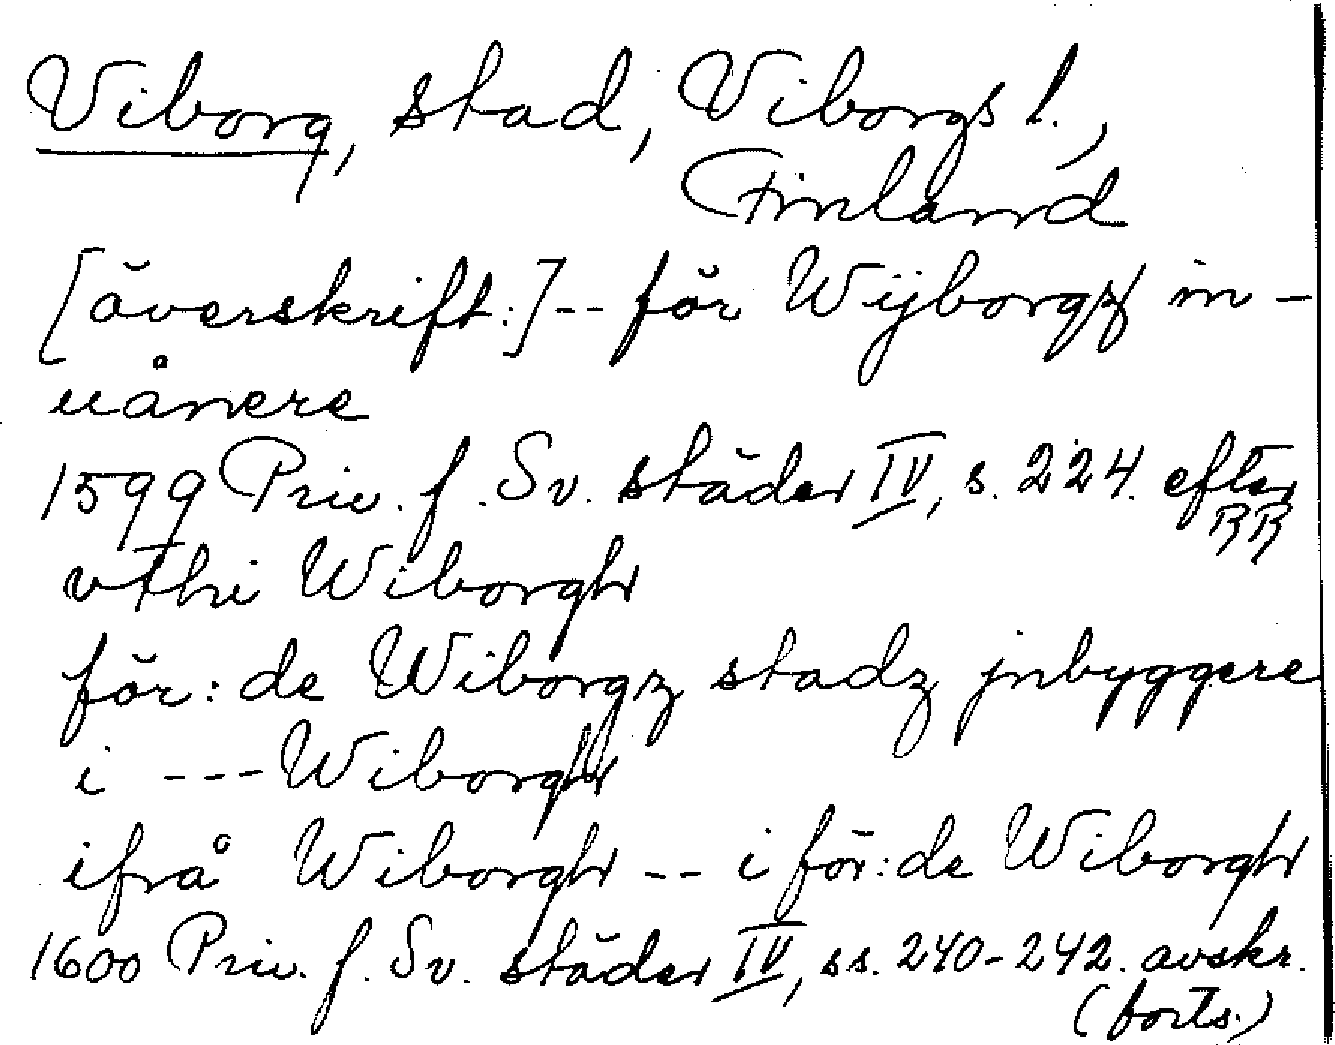 Viborg, stad, Viborgs l.,
Finland
[överskrift:]-- för Wijborgz in-
uånere
1599 Priv. f. Sv. städer IV, s. 224. efter
RR
vthi Wiborgh
för: de Wiborgz stadz jnbyggere
i --- Wiborgh
ifrå Wiborgh -- i för: de Wiborgh
1600 Priv. f. Sv. städer IV, ss. 240-242. avskr.
(forts.)